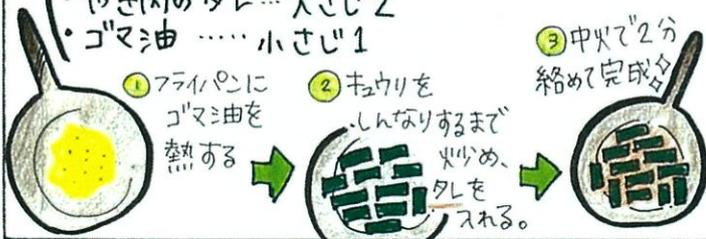 ・やき肉のタレ…大さじ2
・ゴマ油……小さじ1
①フライパンに
ゴマ油を
熱する
②キュウリを
しんなりするまで
炒め、
タレを
入れる。
③中火で2分
絡めて完成